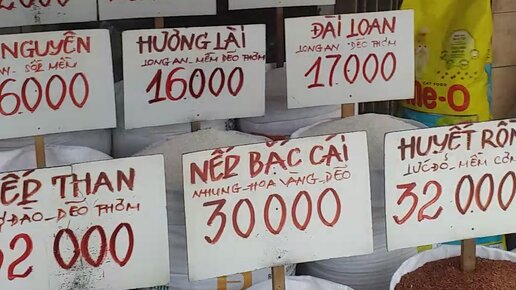 2000
000
NGUYÊN
SỐC MỀM
6.000
HƯƠNG LÀI
LONG AN - MỀM DẺO THƠM
16.000
ĐÀI LOAN
LONG AN - DẺO THƠM
17.000
me-O
CAT FOOD
NẾP THAN
DẺO THƠM
32 000
NẾP BẮC CÁI
NHUNG - HOA VÀNG - DẺO
30 000
HUYẾT RỒN
LỨC ĐỎ - MỀM CƠM
32 000